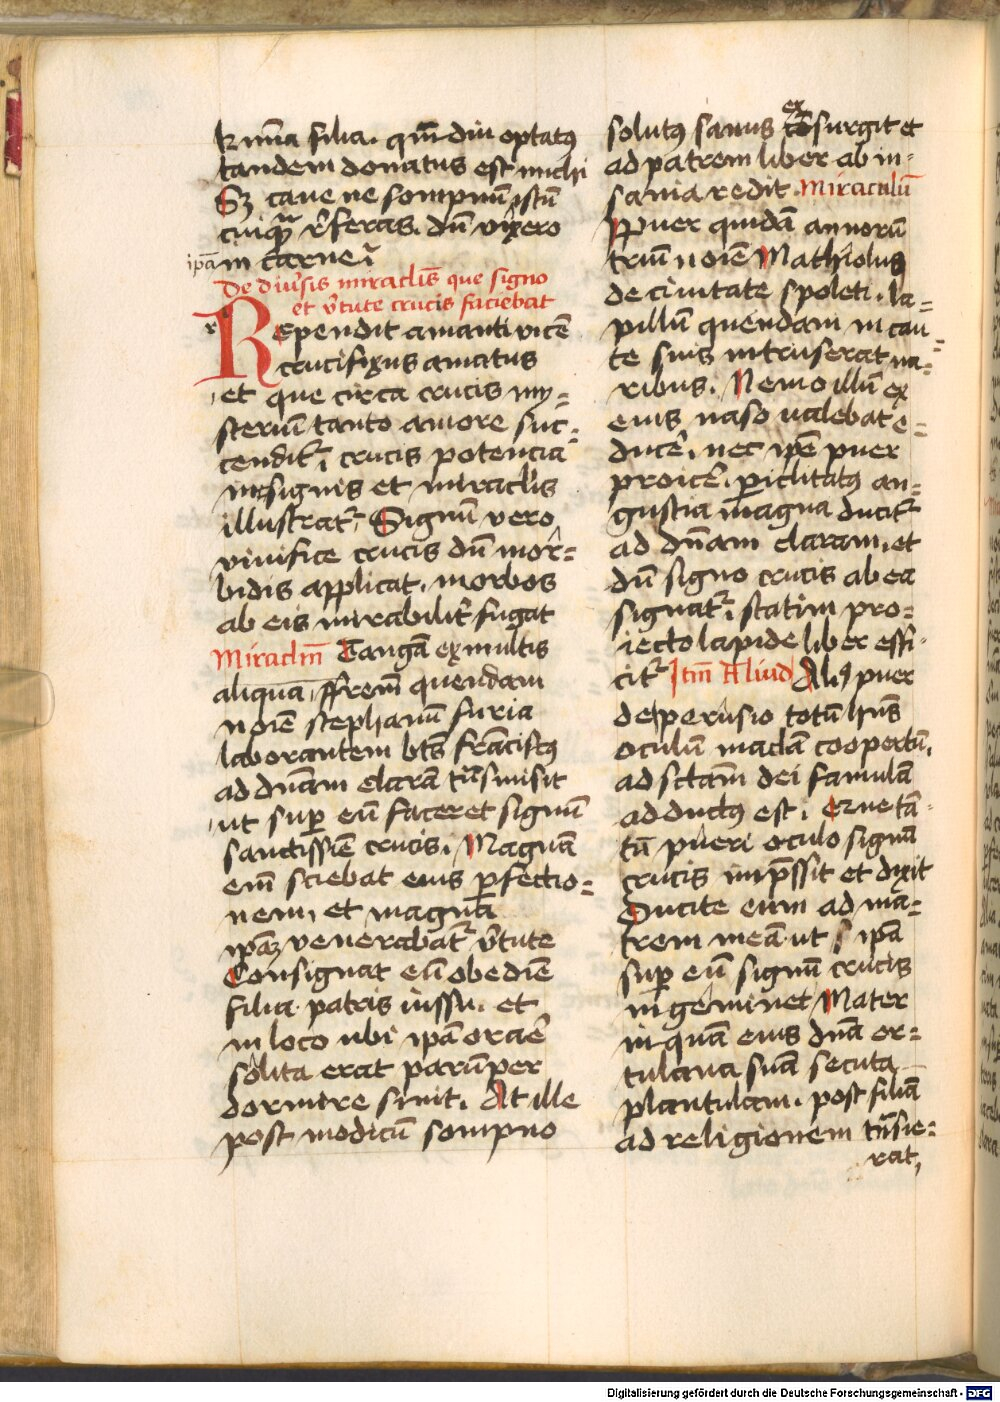 krimna filia. qm̄diu optatꝰ
tandem donatus est michi
Sꝫ caue ne sompnū istū
cuiqᷓ r̉feras. dū vix̉ero
ipā in carne
De diu̾sis miraclis̄ que signo
et v̾tute crucis faciebat
Rependit amanti vicē
crucifixus amatus
et que circa crucis my=
sterium tanto amore suc=
cendit᷑ crucis potencia
insignis et miraclis̄
illustrat᷑ Signū vero
viuifice crucis dū mor̄=
bidis applicat. morbos
ab eis mirabilit̾ fugat
Miraclm̄ Tangā ex multis
aliqua, ffrem̄ quendam
noīe stephanū furia
laborantem btūs frāciscꝰ
ad dn̄am clarā tn̄smisit
ut suꝑ eū faceret signū
sanctissīe crucis. Magnā
em̄ sciebat eius ꝑfectio=
nem, et magnā
ipāꝫ venerabat᷑ v̾tute
Consignat eū obediēs
filia patris iussu. et
in loco ubi ipā orar̄e
solita erat parūper
dormire sinit. At ille
post modicū sompno
solutꝰ sanus ex
surgit et
ad patrem liber ab in=
sania redit. Miraculū
Puer quidā annorū
triū noīe Mathiolus
de ciuitate spoleti. la=
pillū quendam in cau
te suis intruserat na=
ribus. Nemo illū ex
eius naso valebat e=
duce̾, nec ipē puer
proice̾. ꝑiclitatꝰ an=
gustia magna ducit᷑
ad dn̄am claram, et
dū signo crucis ab ea
signat᷑, statim pro=
iecto lapide liber effi=
cit᷑ Itm̄ Aliud Aliꝰ puer
de perusio totū hn̄s
oculū maclā coopertū,
ad sctām̄ dei famulā
adductꝰ est, Que tā=
tū pueri oculo signū
crucis imp̄ssit et dixit
Ducite eum ad ma=
trem meā ut ipā
suꝑ eū signū crucis
ingeminet Mater
inquā eius dn̄a or=
tulana suā secuta
plantulam. post filiā
ad religionem tn̄sie=
rat,
Digitalisierung gefördert durch die Deutsche Forschungsgemeinschaft - DFG